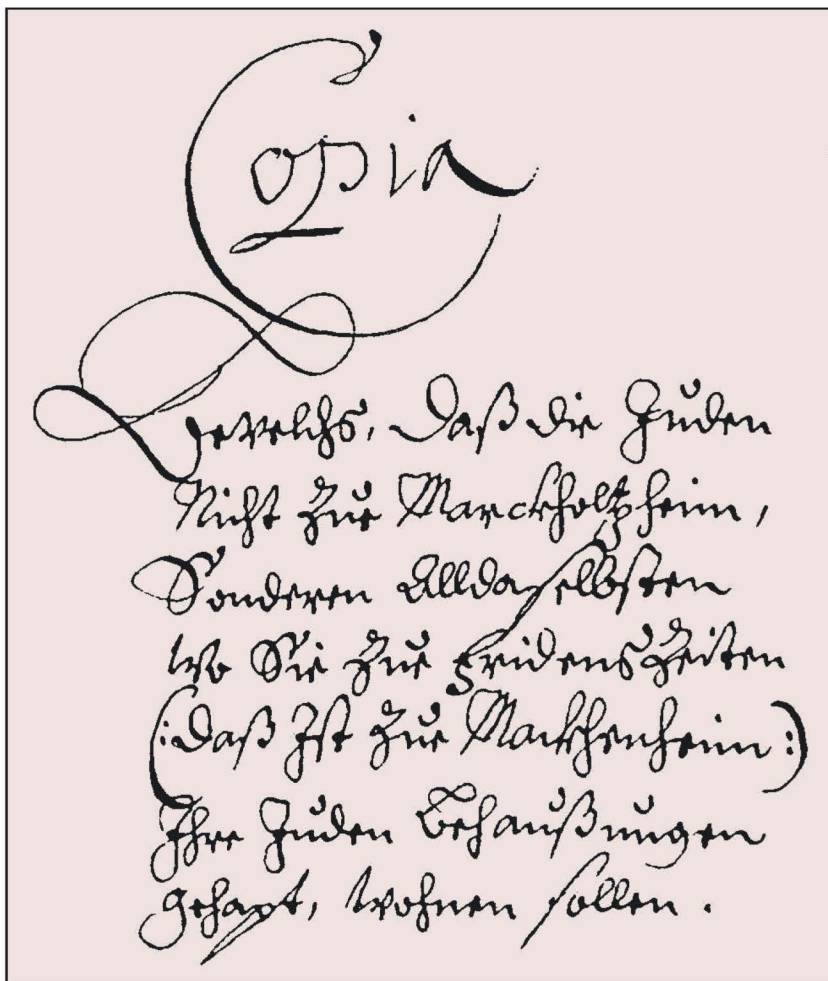 Copia
Bevelchs, Daß die Juden
Nicht Zue Marckholtzheim,
Sonderen Alldaselbsten
wo Sie Zue FridensZeiten
(: Daß Ist Zue Mackhenheim :)
Ihre Juden Behaußungen
gehapt, wohnen sollen.